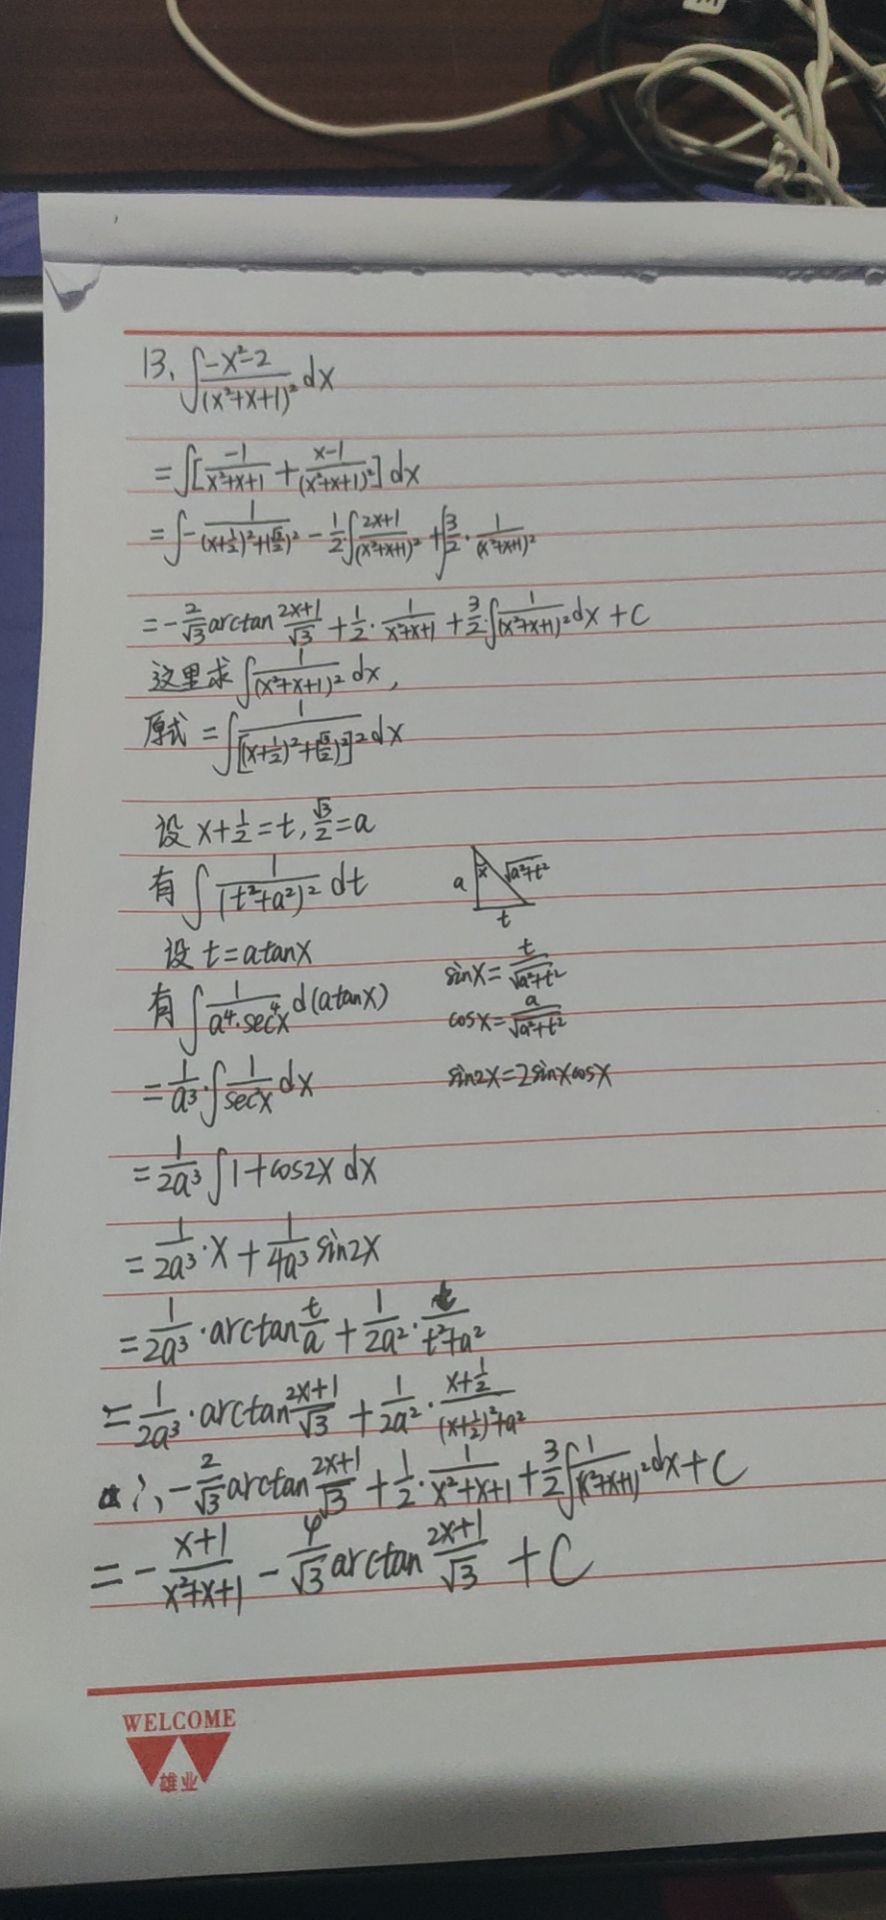 13、∫(-x²-2)/(x²+x+1)² dx
=∫[-1/(x²+x+1) + (x-1)/(x²+x+1)²] dx
=∫-1/((x+1/2)²+(√3/2)²) - 1/2∫(2x+1)/(x²+x+1)² + ∫3/2·1/(x²+x+1)²
=-2/√3 arctan (2x+1)/√3 + 1/2·1/(x²+x+1) + 3/2·∫1/(x²+x+1)² dx + C
这里求∫1/(x²+x+1)² dx,
原式=∫1/[(x+1/2)²+(√3/2)²]² dx
设 x+1/2=t, √3/2=a
有∫1/(t²+a²)² dt
a x √(a²+t²)
t
设 t=atanx
sinx=t/√(a²+t²)
有∫1/(a⁴·sec⁴x) d(atanx)
cosx=a/√(a²+t²)
=1/a³·∫1/sec²x dx
sin2x=2sinxcosx
=1/2a³ ∫1+cos2x dx
=1/2a³·x + 1/4a³ sin2x
=1/2a³·arctan t/a + 1/2a²·t/(t²+a²)
=1/2a³·arctan (2x+1)/√3 + 1/2a²·(x+1/2)/((x+1/2)²+a²)
∴-2/√3 arctan (2x+1)/√3 + 1/2·1/(x²+x+1) + 3/2∫1/(x²+x+1)² dx + C
=-(x+1)/(x²+x+1) - 4/√3 arctan (2x+1)/√3 + C
WELCOME
雄业